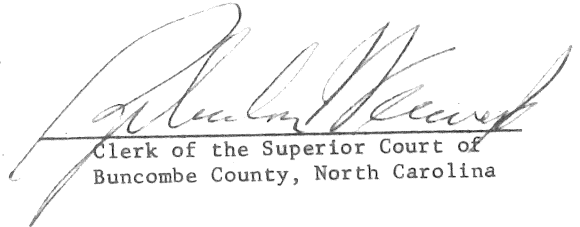 Clerk of the Superior Court of
Buncombe County, North Carolina